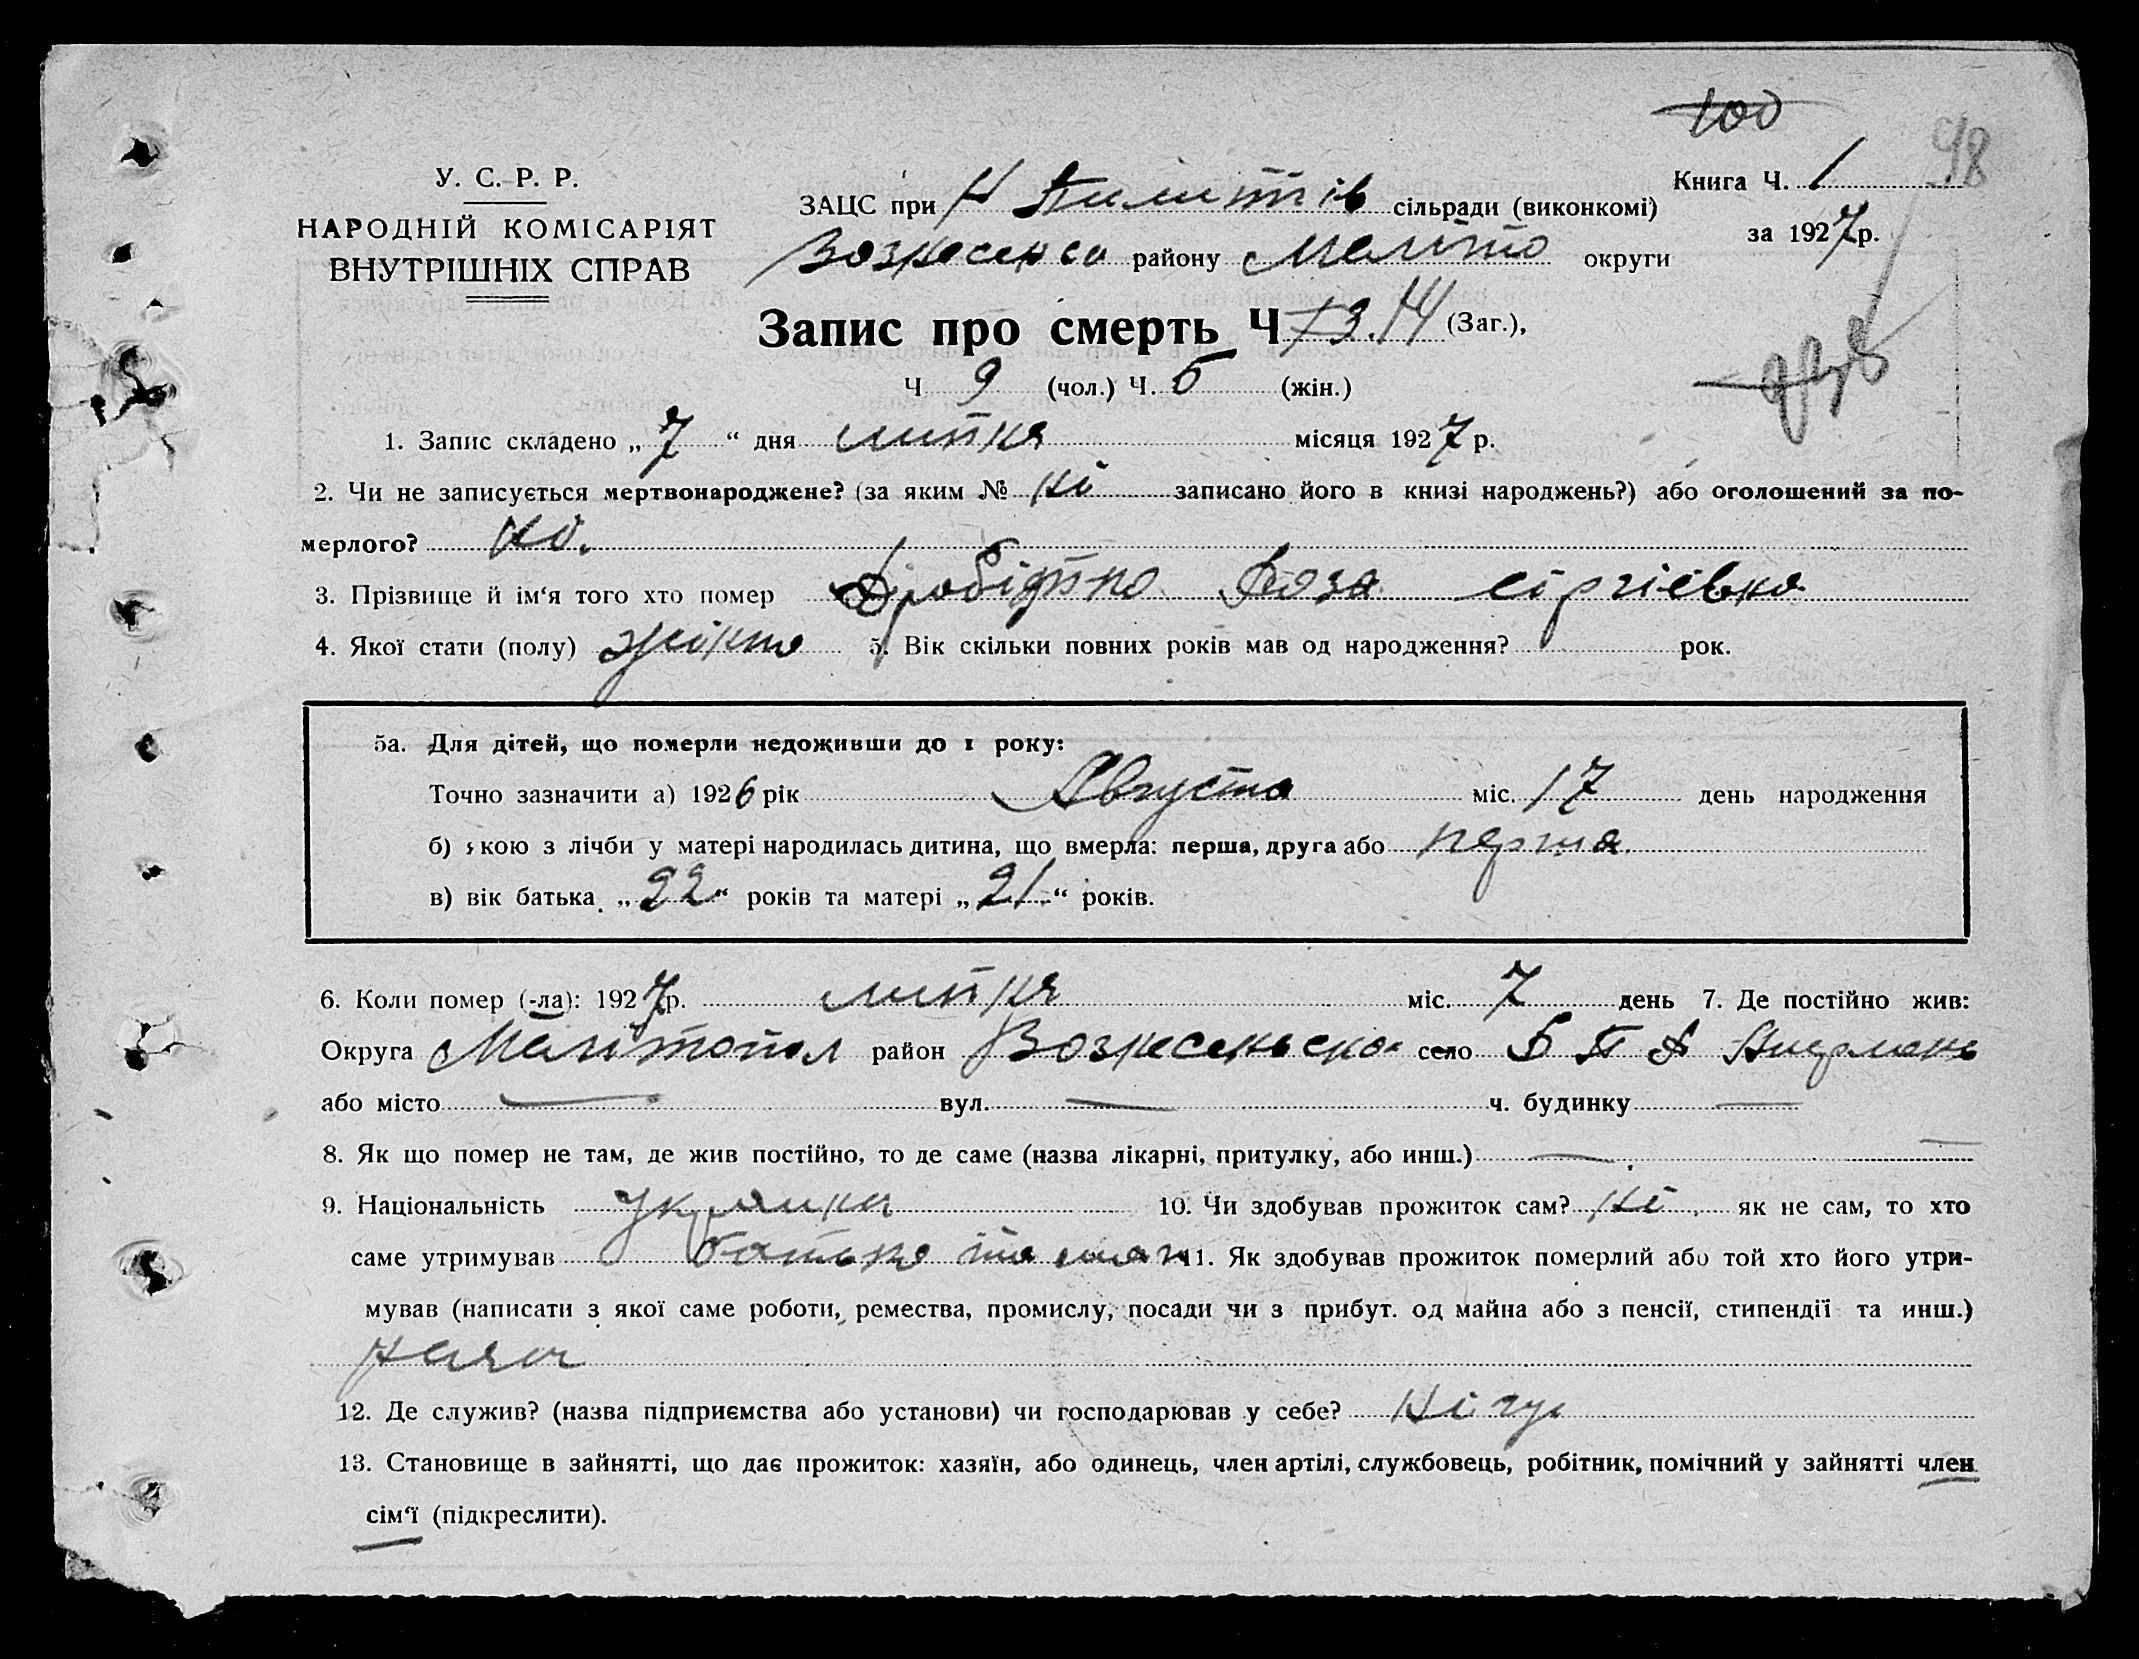 100
48
У. С. Р. Р.
НАРОДНІЙ КОМІСАРІЯТ
ВНУТРІШНІХ СПРАВ
ЗАЦС при Н сільради (виконкомі)
району Меліто округи
Книга Ч. 1
за 1927 р.
Запис про смерть Ч 13. 14 (Заг.),
Ч 9 (чол.) Ч. 5 (жін.)
1. Запис складено „ 7 “ дня липня місяця 1927 р.
2. Чи не записується мертвонароджене? (за яким № ні записано його в книзі народжень?) або оголошений за по-
мерлого? ні.
3. Прізвище й ім‘я того хто помер Роза
4. Якої стати (полу) 5. Вік скільки повних років мав од народження? рок.
5а. Для дітей, що померли недоживши до 1 року:
Точно зазначити а) 1926 рік Августа міс. 17 день народження
б) якою з лічби у матері народилась дитина, що вмерла: перша, друга або перша.
в) вік батька „ 22 “ років та матері „ 21. “ років.
6. Коли помер (-ла): 1927 р. липня міс. 7 день 7. Де постійно жив:
Округа Мелітопол район село
або місто — вул. — ч. будинку —
8. Як що помер не там, де жив постійно, то де саме (назва лікарні, притулку, або инш.) —
9. Національність українка 10. Чи здобував прожиток сам? ні як не сам, то хто
саме утримував батько та мати 11. Як здобував прожиток померлий або той хто його утри-
мував (написати з якої саме роботи, ремества, промислу, посади чи з прибут. од майна або з пенсії, стипендії та инш.)
12. Де служив? (назва підприємства або установи) чи господарював у себе?
13. Становище в зайнятті, що дає прожиток: хазяїн, або одинець, член артілі, службовець, робітник, помічний у зайнятті член
сім‘ї (підкреслити).